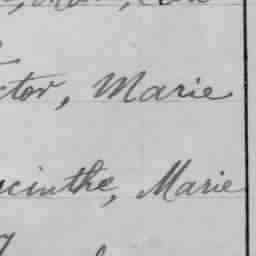 ctor, Marie
cinthe, Marie